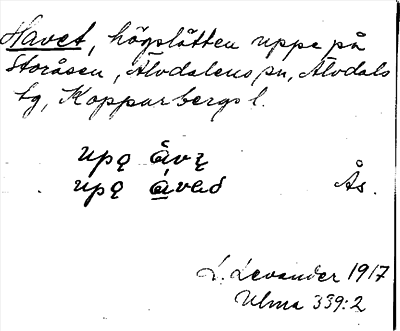 Havet, högslätten uppe på
Storåsen, Älvdalens sn, Älvdals
tg, Kopparbergs l.
upą̊ åvę
upą̊ åveð Ås.
L. Levander 1917
Ulma 339:2